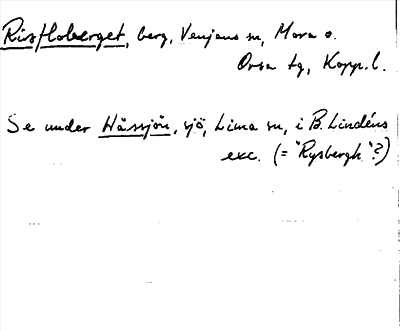 Ristloberget, berg, Venjans sn, Mora o.
Orsa tg, Kopp. l.
Se under Hässjön, sjö, Lima sn, i B. Lindéns
exc. (= "Rysbergh"?)